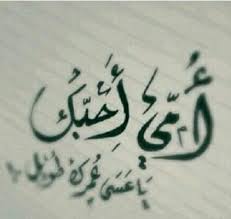 أُمّي أُحبّك
يا عسى عُمرك طويل